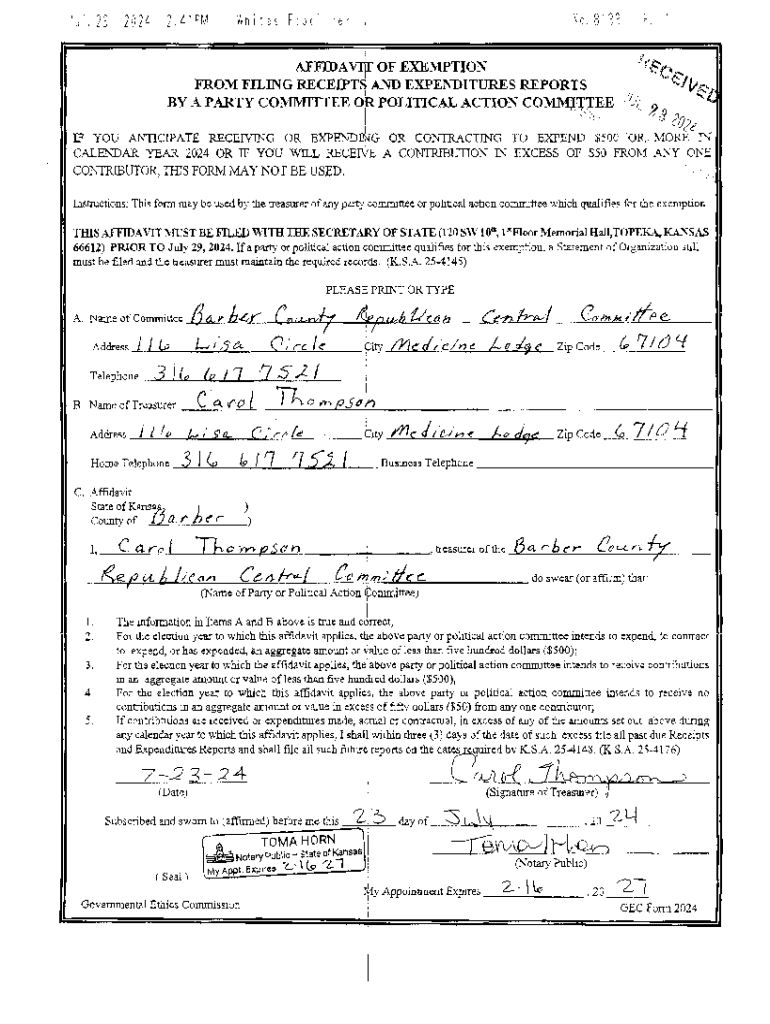 2024 2:41PM
AFFIDAVIT OF EXEMPTION
FROM FILING RECEIPTS AND EXPENDITURES REPORTS
BY A PARTY COMMITTEE OR POLITICAL ACTION COMMITTEE
RECEIVED
28 2024
IF YOU ANTICIPATE RECEIVING OR EXPENDING OR CONTRACTING TO EXPEND $500 OR MORE IN
CALENDAR YEAR 2024 OR IF YOU WILL RECEIVE A CONTRIBUTION IN EXCESS OF $50 FROM ANY ONE
CONTRIBUTOR, THIS FORM MAY NOT BE USED.
Instructions: This form may be used by the treasurer of any party committee or political action committee which qualifies for the exemption.
THIS AFFIDAVIT MUST BE FILED WITH THE SECRETARY OF STATE (120 SW 10th, 1st Floor Memorial Hall, TOPEKA, KANSAS
66612) PRIOR TO July 29, 2024. If a party or political action committee qualifies for this exemption, a Statement of Organization still
must be filed and the treasurer must maintain the required records. (K.S.A. 25-4145)
PLEASE PRINT OR TYPE
A. Name of Committee Barber County Republican Central Committee
Address 116 Lisa Circle City Medicine Lodge Zip Code 67104
Telephone 316 617 7521
B. Name of Treasurer Carol Thompson
Address 116 Lisa Circle City Medicine Lodge Zip Code 67104
Home Telephone 316 617 7521 Business Telephone
C. Affidavit
State of Kansas )
County of Barber )
I, Carol Thompson , treasurer of the Barber County
Republican Central Committee do swear (or affirm) that:
(Name of Party or Political Action Committee)
1. The information in Items A and B above is true and correct;
2. For the election year to which this affidavit applies, the above party or political action committee intends to expend, to contract
to expend, or has expended, an aggregate amount or value of less than five hundred dollars ($500);
3. For the election year to which the affidavit applies, the above party or political action committee intends to receive contributions
in an aggregate amount or value of less than five hundred dollars ($500);
4. For the election year to which this affidavit applies, the above party or political action committee intends to receive no
contributions in an aggregate amount or value in excess of fifty dollars ($50) from any one contributor;
5. If contributions are received or expenditures made, actual or contractual, in excess of any of the amounts set out above during
any calendar year to which this affidavit applies, I shall within three (3) days of the date of such excess file all past due Receipts
and Expenditures Reports and shall file all such future reports on the dates required by K.S.A. 25-4148. (K.S.A. 25-4176)
7-23-24 Carol Thompson
(Date) (Signature of Treasurer)
Subscribed and sworn to (affirmed) before me this 23 day of July , 20 24
TOMA HORN
Notary Public - State of Kansas
My Appt. Expires 2-16 27
(Seal)
Toma Horn
(Notary Public)
My Appointment Expires 2-16 , 20 27
Governmental Ethics Commission GEC Form 2024